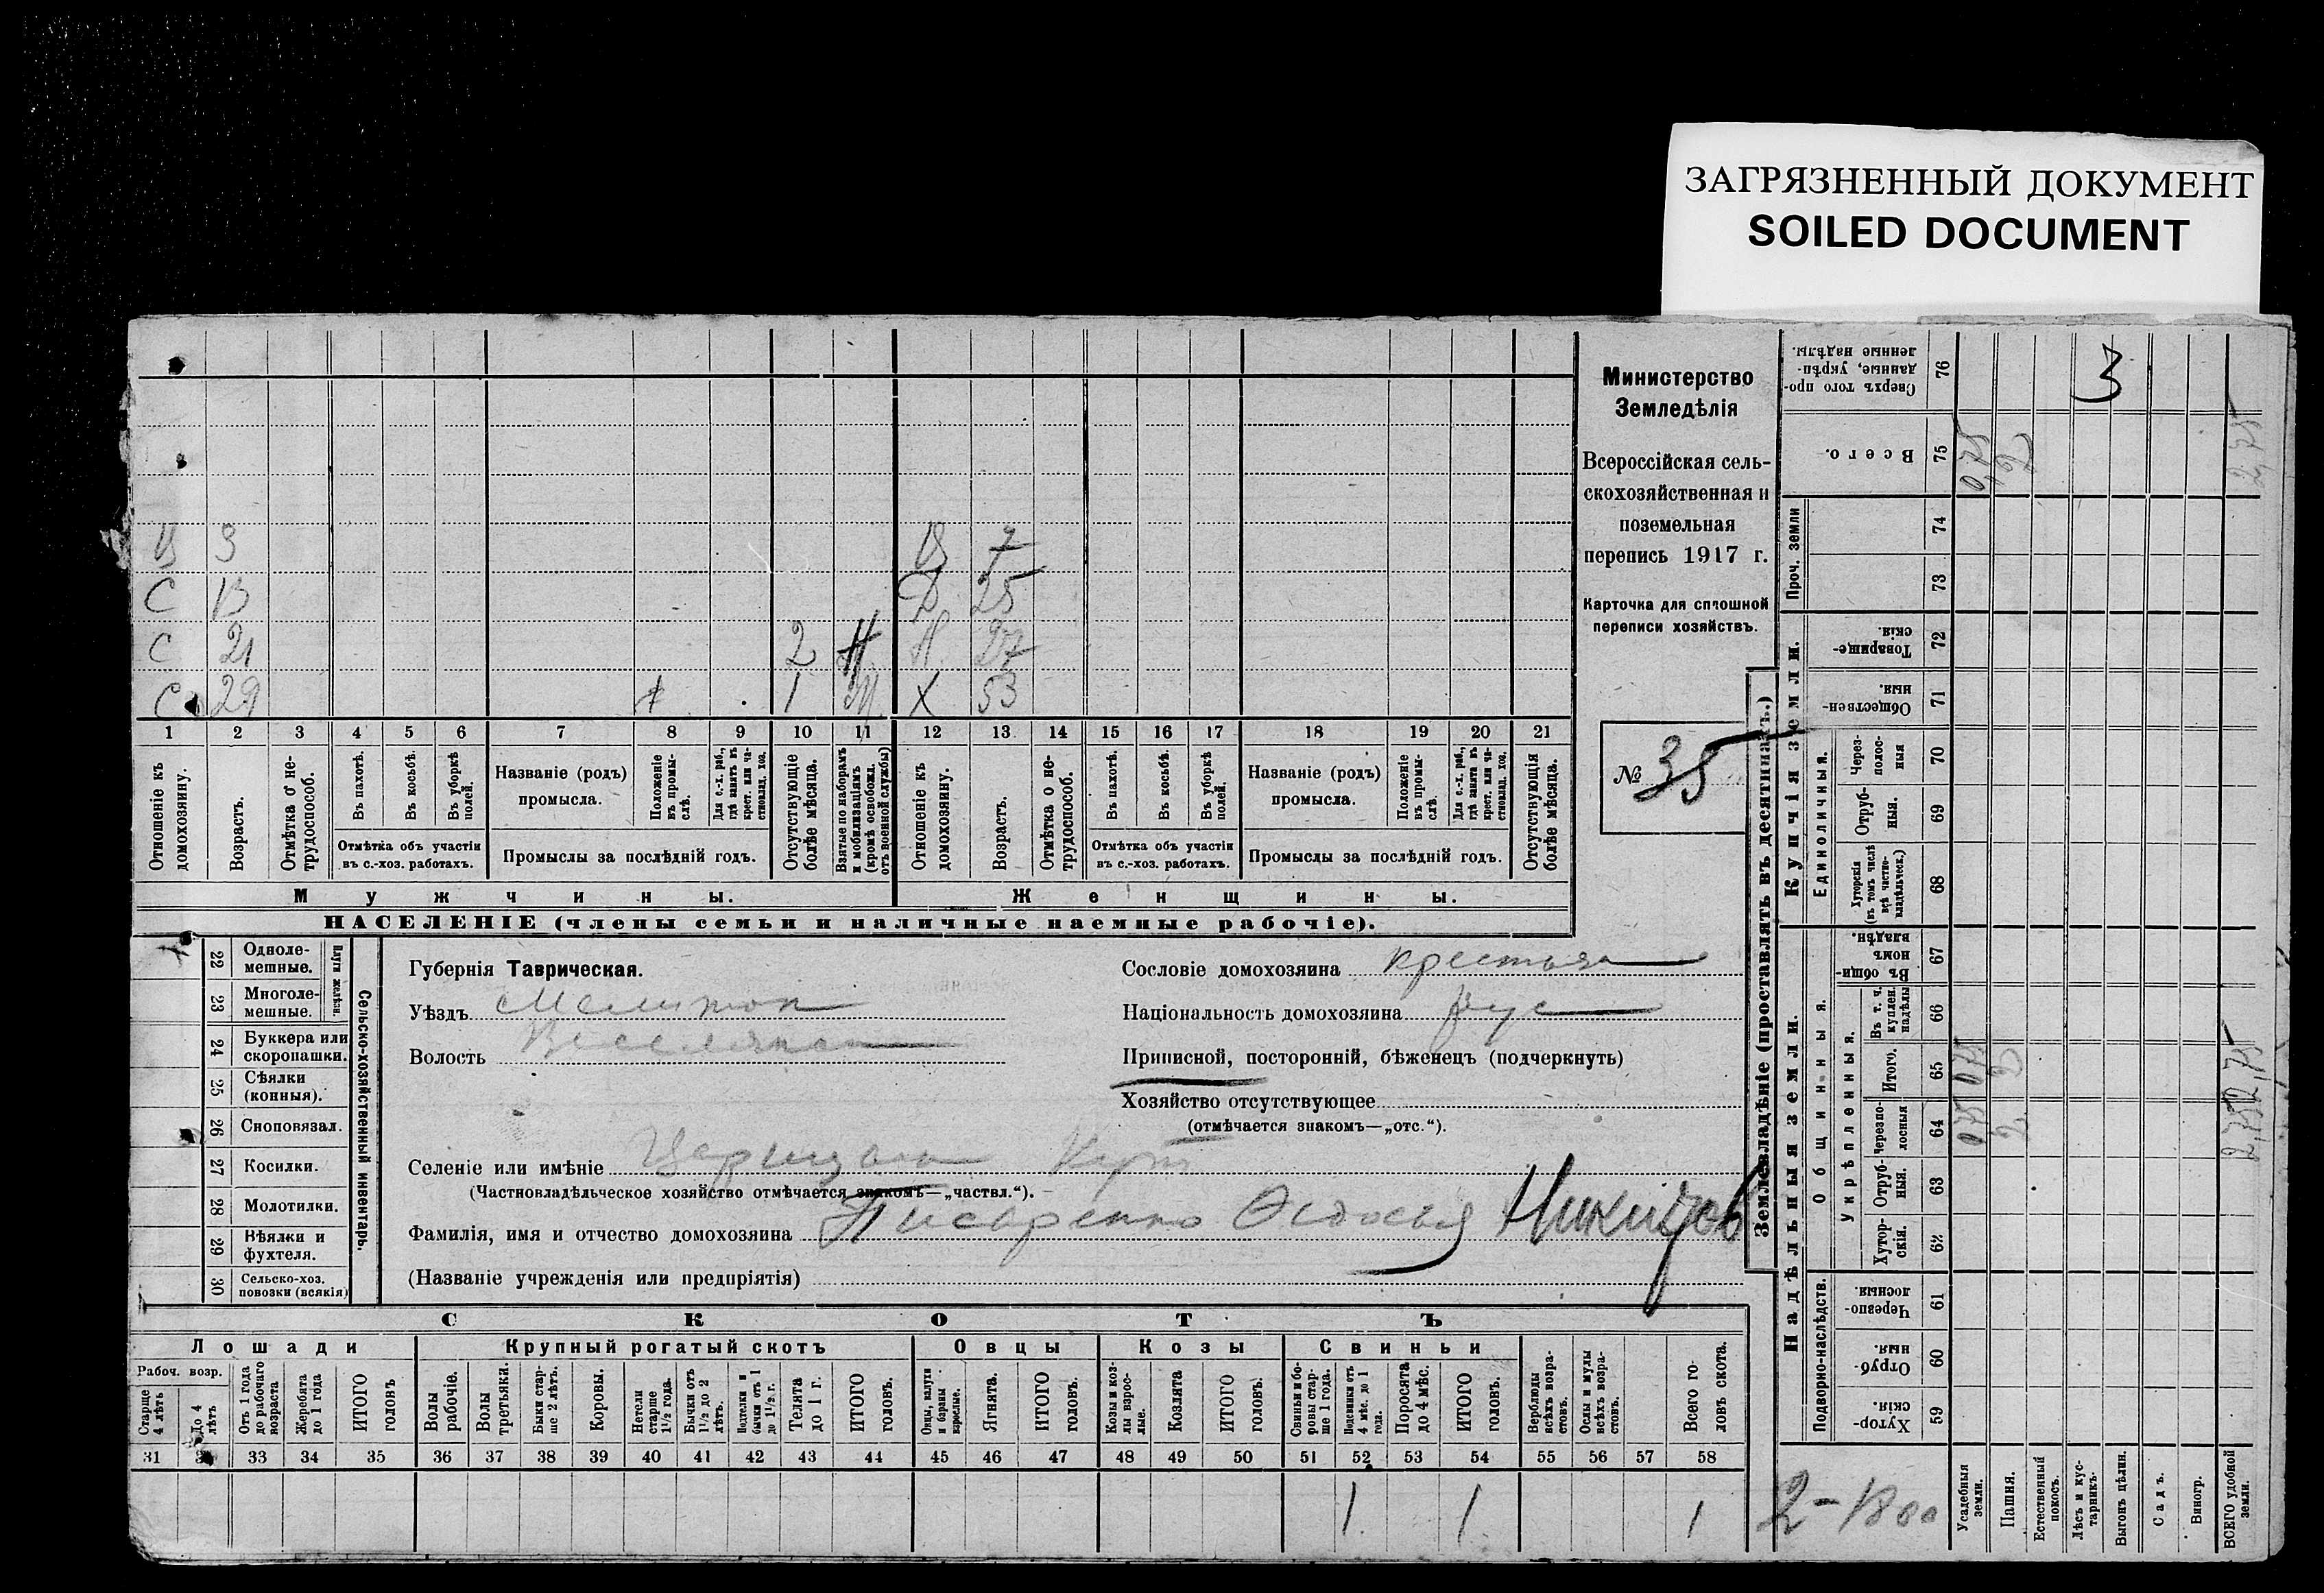 ЗАГРЯЗНЕННЫЙ ДОКУМЕНТ
SOILED DOCUMENT
В 3 В 7
С 13 Д 25
С 21 2 Н 27
С 29 1 М Х 53
1 2 3 4 5 6 7 8 9 10 11 12 13 14 15 16 17 18 19 20 21
Отношеніе къ домохозяину.
Возрастъ.
Отмѣтка о нетрудоспособ.
Въ пахотѣ.
Въ косьбѣ.
Въ уборкѣ полей.
Отмѣтка объ участіи въ с.-хоз. работахъ.
Названіе (родъ) промысла.
Положеніе въ промыслѣ.
Для с.-х. раб., гдѣ занятъ въ крест. или частновлад. хоз.
Промыслы за послѣдній годъ.
Отсутствующіе болѣе мѣсяца.
Взятые по наборамъ и мобилизаціямъ (кромѣ освобожд. отъ военной службы)
Отношеніе къ домохозяину.
Возрастъ.
Отмѣтка о нетрудоспособ.
Въ пахотѣ.
Въ косьбѣ.
Въ уборкѣ полей.
Отмѣтка объ участіи въ с.-хоз. работахъ.
Названіе (родъ) промысла.
Положеніе въ промыслѣ.
Для с.-х. раб., гдѣ занята въ крест. или частновлад. хоз.
Промыслы за послѣдній годъ.
Отсутствующія болѣе мѣсяца.
Мужчины. Женщины.
НАСЕЛЕНІЕ (члены семьи и наличные наемные рабочіе).
Министерство
Земледѣлія
Всероссійская сель-
скохозяйственная и
поземельная
перепись 1917 г.
Карточка для сплошной
переписи хозяйствъ.
№ 35
22 Одноле-мешные.
23 Многоле-мешные.
Плуги желѣзн.
24 Буккера или скоропашки.
25 Сѣялки (конныя).
26 Сноповязал.
27 Косилки.
28 Молотилки.
29 Вѣялки и фухтеля.
30 Сельско-хоз. повозки (всякія)
Сельско-хозяйственный инвентарь.
Губернія Таврическая.
Уѣздъ Мелитоп
Волость
Сословіе домохозяина крестьян
Національность домохозяина рус
Приписной, посторонній, бѣженецъ (подчеркнуть)
Хозяйство отсутствующее
(отмѣчается знакомъ—„отс.“).
Селеніе или имѣніе
(Частновладѣльческое хозяйство отмѣчается знакомъ—„частвл.“).
Фамилія, имя и отчество домохозяина Писаренко Ѳедосья
(Названіе учрежденія или предпріятія)
СКОТЪ
Лошади Крупный рогатый скотъ Овцы Козы Свиньи
Рабоч. возр.
Старше 4 лѣтъ
До 4 лѣтъ
Отъ 1 года до рабочаго возраста
Жеребята до 1 года
ИТОГО головъ
Волы рабочіе.
Волы третьяки.
Быки старше 2 лѣтъ.
Коровы.
Нетели старше 1½ года.
Бычки отъ 1½ до 2 лѣтъ.
Подтелки и бычки отъ 1 до 1½ г.
Телята до 1 г.
ИТОГО головъ.
Овцы, валухи и бараны взрослые.
Ягнята.
ИТОГО головъ.
Козы и козлы взрослые.
Козлята
ИТОГО головъ.
Свиньи и боровы старше 1 года.
Подсвинки отъ 4 мѣс. до 1 года.
Поросята до 4 мѣс.
ИТОГО головъ.
Верблюды всѣхъ возрастовъ.
Ослы и мулы всѣхъ возрастовъ.
Всего головъ скота.
31 32 33 34 35 36 37 38 39 40 41 42 43 44 45 46 47 48 49 50 51 52 53 54 55 56 57 58
1 1 1
Землевладѣніе (проставлять въ десятинахъ.)
Купчія земли.
Надѣльныя земли.
Сверхъ того проданные, укрѣпленные надѣлы. 76 3
Всего. 75 0,75 2 2,75
Проч. земли 74 73
Товарищескія. 72
Общественныя. 71
Единоличныя.
Черезполосныя 70
Отрубныя. 69
Хуторскія (въ томъ числѣ всѣ частновладѣльческ.) 68
Общинныя.
Въ общинномъ владѣн. 67
Укрѣпленныя.
Въ т. ч. куплен. надѣлы 66
Итого. 65 075 2 2,75
Черезполосныя 64 075 2 2,75
Отрубныя. 63
Хуторскія. 62
Подворно-наслѣдств.
Черезполосныя. 61
Отрубныя. 60
Хуторскія. 59
2-1800
Усадебныя земли.
Пашня.
Естественный покосъ.
Лѣсъ и кустарникъ.
Выгонъ цѣлин.
Садъ.
Виногр.
ВСЕГО удобной земли.